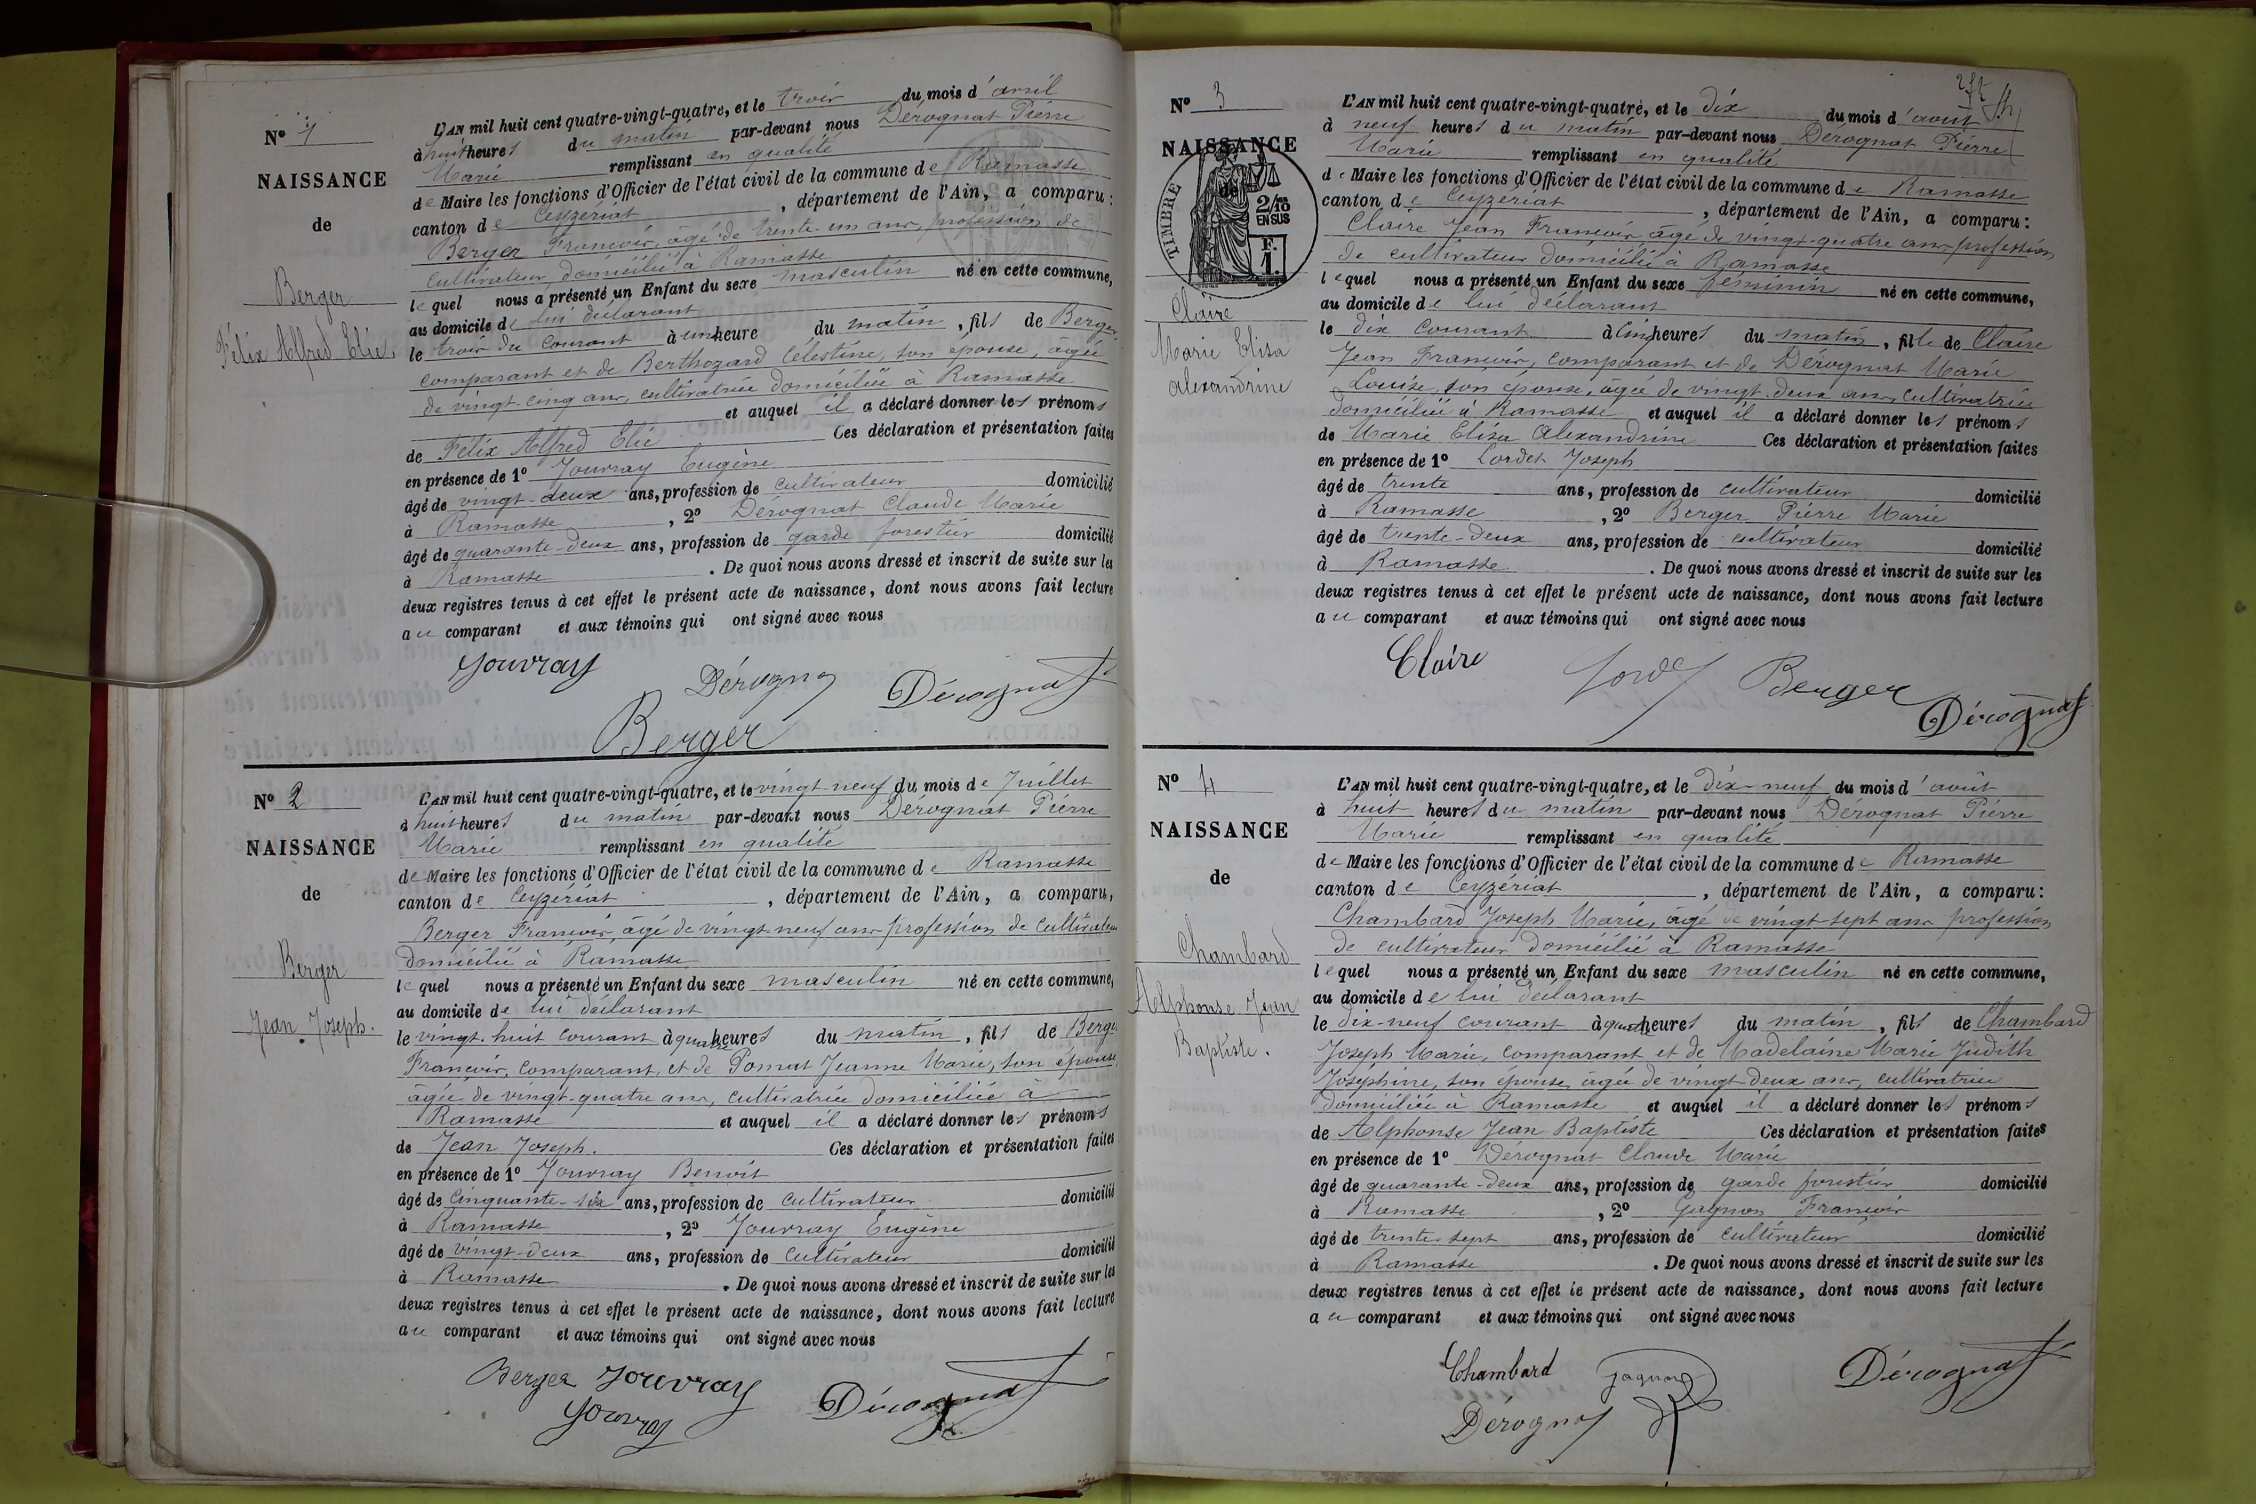 N° 1
NAISSANCE
de
Berger
Félix Alfred Elie.
L'AN mil huit cent quatre-vingt-quatre, et le trois du mois d'avril
à huit heures du matin par-devant nous Dérognat Pierre
Marie remplissant en qualité
de Maire les fonctions d'Officier de l'état civil de la commune de Ramasse
canton de Ceyzériat, département de l'Ain, a comparu:
Berger François, âgé de trente un ans, profession de
cultivateur, domicilié à Ramasse
lequel nous a présenté un Enfant du sexe masculin né en cette commune,
au domicile de lui déclarant
le trois du courant à une heure du matin, fils de Berger
comparant et de Berthozard Célestine, son épouse, âgée
de vingt-cinq ans, cultivatrice domiciliée à Ramasse
et auquel il a déclaré donner les prénoms
de Félix Alfred Elie Ces déclaration et présentation faites
en présence de 1° Jouvray Eugène
âgé de vingt-deux ans, profession de cultivateur domicilié
à Ramasse, 2° Dérognat Claude Marie
âgé de quarante-deux ans, profession de garde forestier domicilié
à Ramasse. De quoi nous avons dressé et inscrit de suite sur les
deux registres tenus à cet effet le présent acte de naissance, dont nous avons fait lecture
au comparant et aux témoins qui ont signé avec nous
Jouvray Dérognat Dérognat
Berger
N° 2
NAISSANCE
de
Berger
Jean Joseph.
L'AN mil huit cent quatre-vingt-quatre, et le vingt-neuf du mois de Juillet
à huit heures du matin par-devant nous Dérognat Pierre
Marie remplissant en qualité
de Maire les fonctions d'Officier de l'état civil de la commune de Ramasse
canton de Ceyzériat, département de l'Ain, a comparu,
Berger François, âgé de vingt neuf ans profession de cultivateur
domicilié à Ramasse
lequel nous a présenté un Enfant du sexe masculin né en cette commune,
au domicile de lui déclarant
le vingt-huit courant à quatre heures du matin, fils de Berger
François, comparant, et de Pomat Jeanne Marie, son épouse
âgée de vingt-quatre ans, cultivatrice domiciliée à
Ramasse et auquel il a déclaré donner les prénoms
de Jean Joseph. Ces déclaration et présentation faites
en présence de 1° Jouvray Benoit
âgé de cinquante-six ans, profession de cultivateur domicilié
à Ramasse, 2° Jouvray Eugène
âgé de vingt-deux ans, profession de cultivateur domicilié
à Ramasse. De quoi nous avons dressé et inscrit de suite sur les
deux registres tenus à cet effet le présent acte de naissance, dont nous avons fait lecture
au comparant et aux témoins qui ont signé avec nous
Berger Jouvray Dérognat
Jouvray
N° 3
NAISSANCE
de
TIMBRE
2/10es
EN SUS
F.
1.
Claire
Marie Elisa
Alexandrine
L'AN mil huit cent quatre-vingt-quatre, et le dix du mois d'août
à neuf heures du matin par-devant nous Dérognat Pierre
Marie remplissant en qualité
de Maire les fonctions d'Officier de l'état civil de la commune de Ramasse
canton de Ceyzériat, département de l'Ain, a comparu:
Claire Jean François âgé de vingt-quatre ans profession
de cultivateur domicilié à Ramasse
lequel nous a présenté un Enfant du sexe féminin né en cette commune,
au domicile de lui déclarant
le dix courant à cinq heures du matin, fille de Claire
Jean François, comparant et de Dérognat Marie
Louise, son épouse, âgée de vingt-deux ans, cultivatrice
domiciliée à Ramasse et auquel il a déclaré donner les prénoms
de Marie Elisa Alexandrine Ces déclaration et présentation faites
en présence de 1° Lordet Joseph
âgé de trente ans, profession de cultivateur domicilié
à Ramasse, 2° Berger Pierre Marie
âgé de trente-deux ans, profession de cultivateur domicilié
à Ramasse. De quoi nous avons dressé et inscrit de suite sur les
deux registres tenus à cet effet le présent acte de naissance, dont nous avons fait lecture
au comparant et aux témoins qui ont signé avec nous
Claire Lordet Berger
Dérognat
N° 4
NAISSANCE
de
Chambard
Alphonse Jean
Baptiste.
L'AN mil huit cent quatre-vingt-quatre, et le dix-neuf du mois d'août
à huit heures du matin par-devant nous Dérognat Pierre
Marie remplissant en qualité
de Maire les fonctions d'Officier de l'état civil de la commune de Ramasse
canton de Ceyzériat, département de l'Ain, a comparu:
Chambard Joseph Marie, âgé de vingt-sept ans profession
de cultivateur domicilié à Ramasse
lequel nous a présenté un Enfant du sexe masculin né en cette commune,
au domicile de lui déclarant
le dix-neuf courant à quatre heures du matin, fils de Chambard
Joseph Marie, comparant et de Madelaine Marie Judith
Joséphine, son épouse, âgée de vingt-deux ans, cultivatrice
domiciliée à Ramasse et auquel il a déclaré donner les prénoms
de Alphonse Jean Baptiste Ces déclaration et présentation faites
en présence de 1° Dérognat Claude Marie
âgé de quarante-deux ans, profession de garde forestier domicilié
à Ramasse, 2° Gagnon François
âgé de trente-sept ans, profession de cultivateur domicilié
à Ramasse. De quoi nous avons dressé et inscrit de suite sur les
deux registres tenus à cet effet le présent acte de naissance, dont nous avons fait lecture
au comparant et aux témoins qui ont signé avec nous
Chambard Gagnon Dérognat
Dérognat